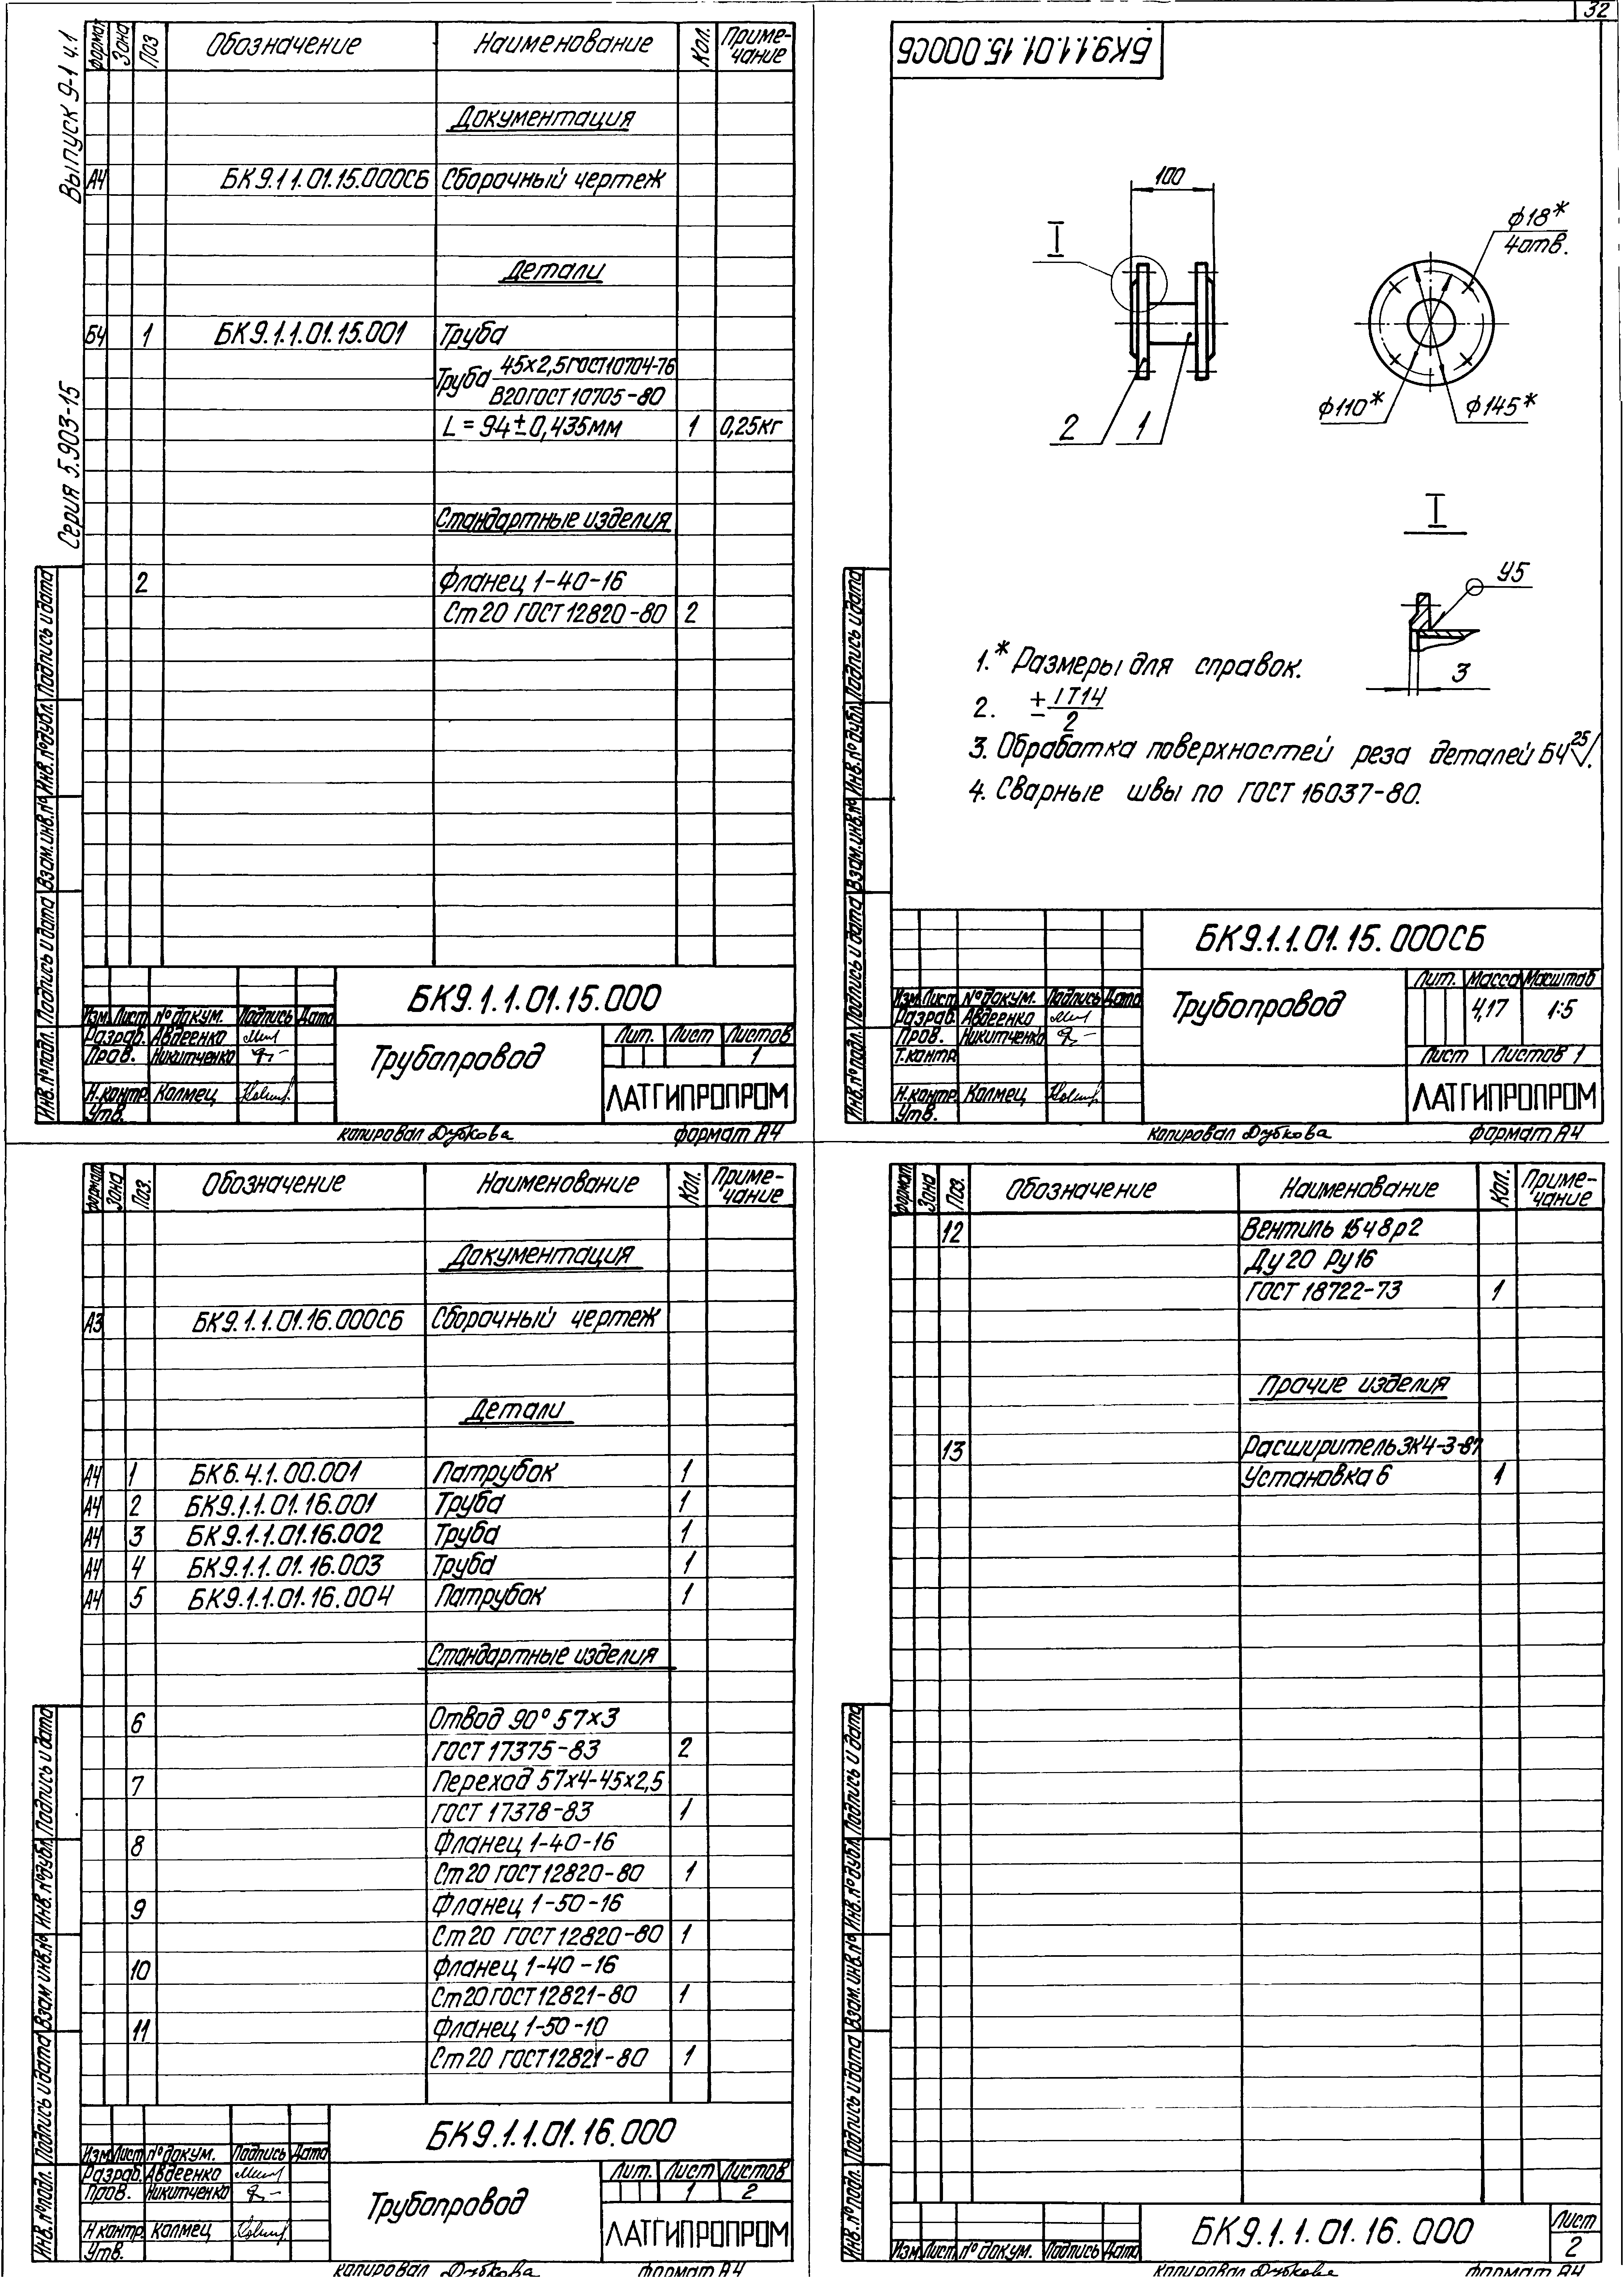 32
Выпуск 9-1 ч.1
Серия 5.903-15
Формат Зона Поз Обозначение Наименование Кол. Приме-чание
Документация
А4 БК9.1 1.01.15.000СБ Сборочный чертеж
Детали
Б4 1 БК9.1.1.01.15.001 Труба
Труба 45х2,5 ГОСТ 10704-76
В20 ГОСТ 10705-80
L = 94±0,435мм 1 0,25кг
Стандартные изделия
2 Фланец 1-40-16
Ст 20 ГОСТ 12820-80 2
Инв.№подл. Подпись и дата Взам.инв.№ Инв.№дубл. Подпись и дата
БК9.1.1.01.15.000
Изм Лист №докум. Подпись Дата
Разраб. Авдеенко
Пров. Никитченко
Н.контр. Калмец
Утв.
Трубопровод
Лит. Лист Листов
1
ЛАТГИПРОПРОМ
копировал Дубкова формат А4
БК9.1.1.01.15.000СБ
100
I
2 1
ф18*
4отв.
ф110* ф145*
I
У5
3
1.* Размеры для справок.
2. ± IT14
2
3. Обработка поверхностей реза деталей Б4 25.
4. Сварные швы по ГОСТ 16037-80.
Инв.№подл. Подпись и дата Взам.инв.№ Инв.№дубл. Подпись и дата
БК9.1.1.01.15.000СБ
Изм Лист №докум. Подпись Дата
Разраб. Авдеенко
Пров. Никитченко
Т.контр.
Н.контр. Калмец
Утв.
Трубопровод
Лит. Масса Масштаб
4,17 1:5
Лист Листов 1
ЛАТГИПРОПРОМ
копировал Дубкова формат А4
Формат Зона Поз. Обозначение Наименование Кол. Приме-чание
Документация
А3 БК9.1.1.01.16.000СБ Сборочный чертеж
Детали
А4 1 БК6.4.1.00.001 Патрубок 1
А4 2 БК9.1.1.01.16.001 Труба 1
А4 3 БК9.1.1.01.16.002 Труба 1
А4 4 БК9.1.1.01.16.003 Труба 1
А4 5 БК9.1.1.01.16.004 Патрубок 1
Стандартные изделия
6 Отвод 90° 57х3
ГОСТ 17375-83 2
7 Переход 57х4-45х2,5
ГОСТ 17378-83 1
8 Фланец 1-40-16
Ст 20 ГОСТ 12820-80 1
9 Фланец 1-50-16
Ст 20 ГОСТ 12820-80 1
10 Фланец 1-40-16
Ст 20 ГОСТ 12821-80 1
11 Фланец 1-50-10
Ст 20 ГОСТ 12821-80 1
Инв.№подл. Подпись и дата Взам.инв.№ Инв.№дубл. Подпись и дата
БК9.1.1.01.16.000
Изм Лист №докум. Подпись Дата
Разраб. Авдеенко
Пров. Никитченко
Н контр. Калмец
Утв.
Трубопровод
Лит. Лист Листов
1 2
ЛАТГИПРОПРОМ
копировал Дубкова формат А4
Формат Зона Поз. Обозначение Наименование Кол. Приме-чание
12 Вентиль 15ч8р2
Ду 20 Ру 16
ГОСТ 18722-73 1
Прочие изделия
13 Расширитель ЗК4-3-87
Установка 6 1
Инв.№подл. Подпись и дата Взам.инв.№ Инв.№дубл. Подпись и дата
Изм Лист №докум. Подпись Дата
БК9.1.1.01.16.000
Лист
2
копировал Дубкова формат А4